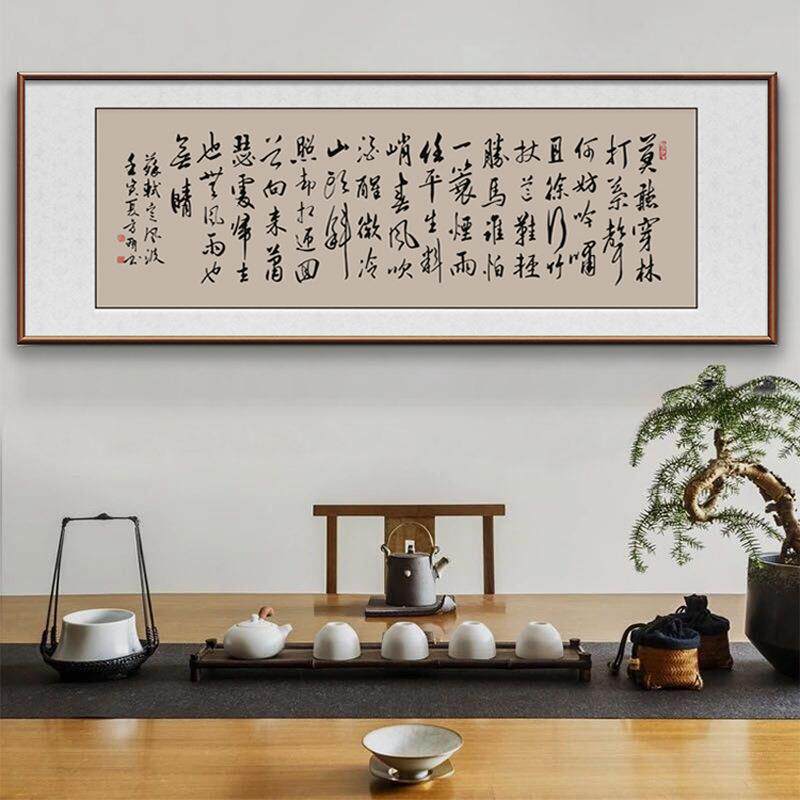 莫聽穿林
打葉聲
何妨吟嘯
且徐行竹
杖芒鞋輕
勝馬誰怕
一蓑煙雨
任平生料
峭春風吹
酒醒微冷
山頭斜
照却相迎回
首向来蕭
瑟處歸去
也無風雨也
無晴
蘇軾定風波
壬寅夏方书